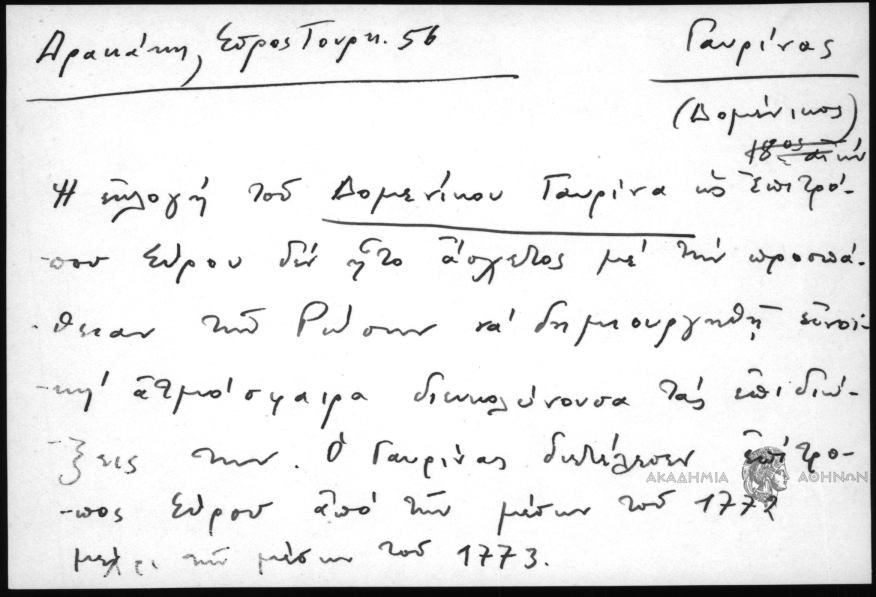 Δρακάκη, Σύρος Τουρκ. 56
Γαυρίνας
(Δομένικος)
Ἡ ἐκλογή τοῦ Δομενίκου Γαυρίνα ὡς Ἐπιτρό-
-που Σύρου δέν ἦτο ἄσχετος μέ τήν προσπά-
-θειαν τῶν Ρώσων νά δημιουργηθῇ εὐνοϊ-
-κή ἀτμόσφαιρα διευκολύνουσα τάς ἐπιδιώ-
-ξεις των. Ὁ Γαυρίνας διετέλεσεν ἐπίτρο-
-πος Σύρου ἀπό τῶν μέσων τοῦ 1772
μέχρι τῶν μέσων τοῦ 1773.
ΑΚΑΔΗΜΙΑ ΑΘΗΝΩΝ